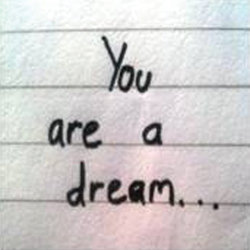 You
are a
dream...